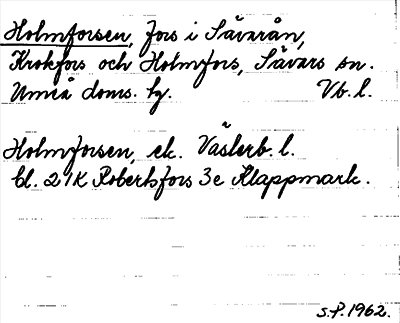 Holmforsen, fors i Sävarån,
Krokfors och Holmfors, Sävars sn.
Umeå doms. hg. Vb. l.
Holmforsen, ek. Västerb. l.
Bl. 21K Robertsfors 3e Klappmark.
S.P. 1962.